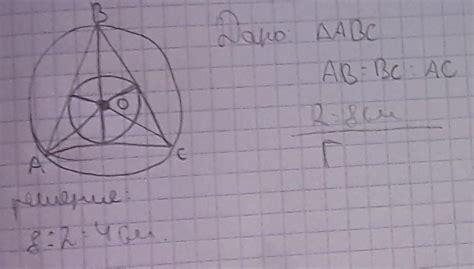 B
O
A
C
Дано: ΔABC
AB = BC = AC
2 = 8 см
Г
решение:
8 : 2 = 4 см.